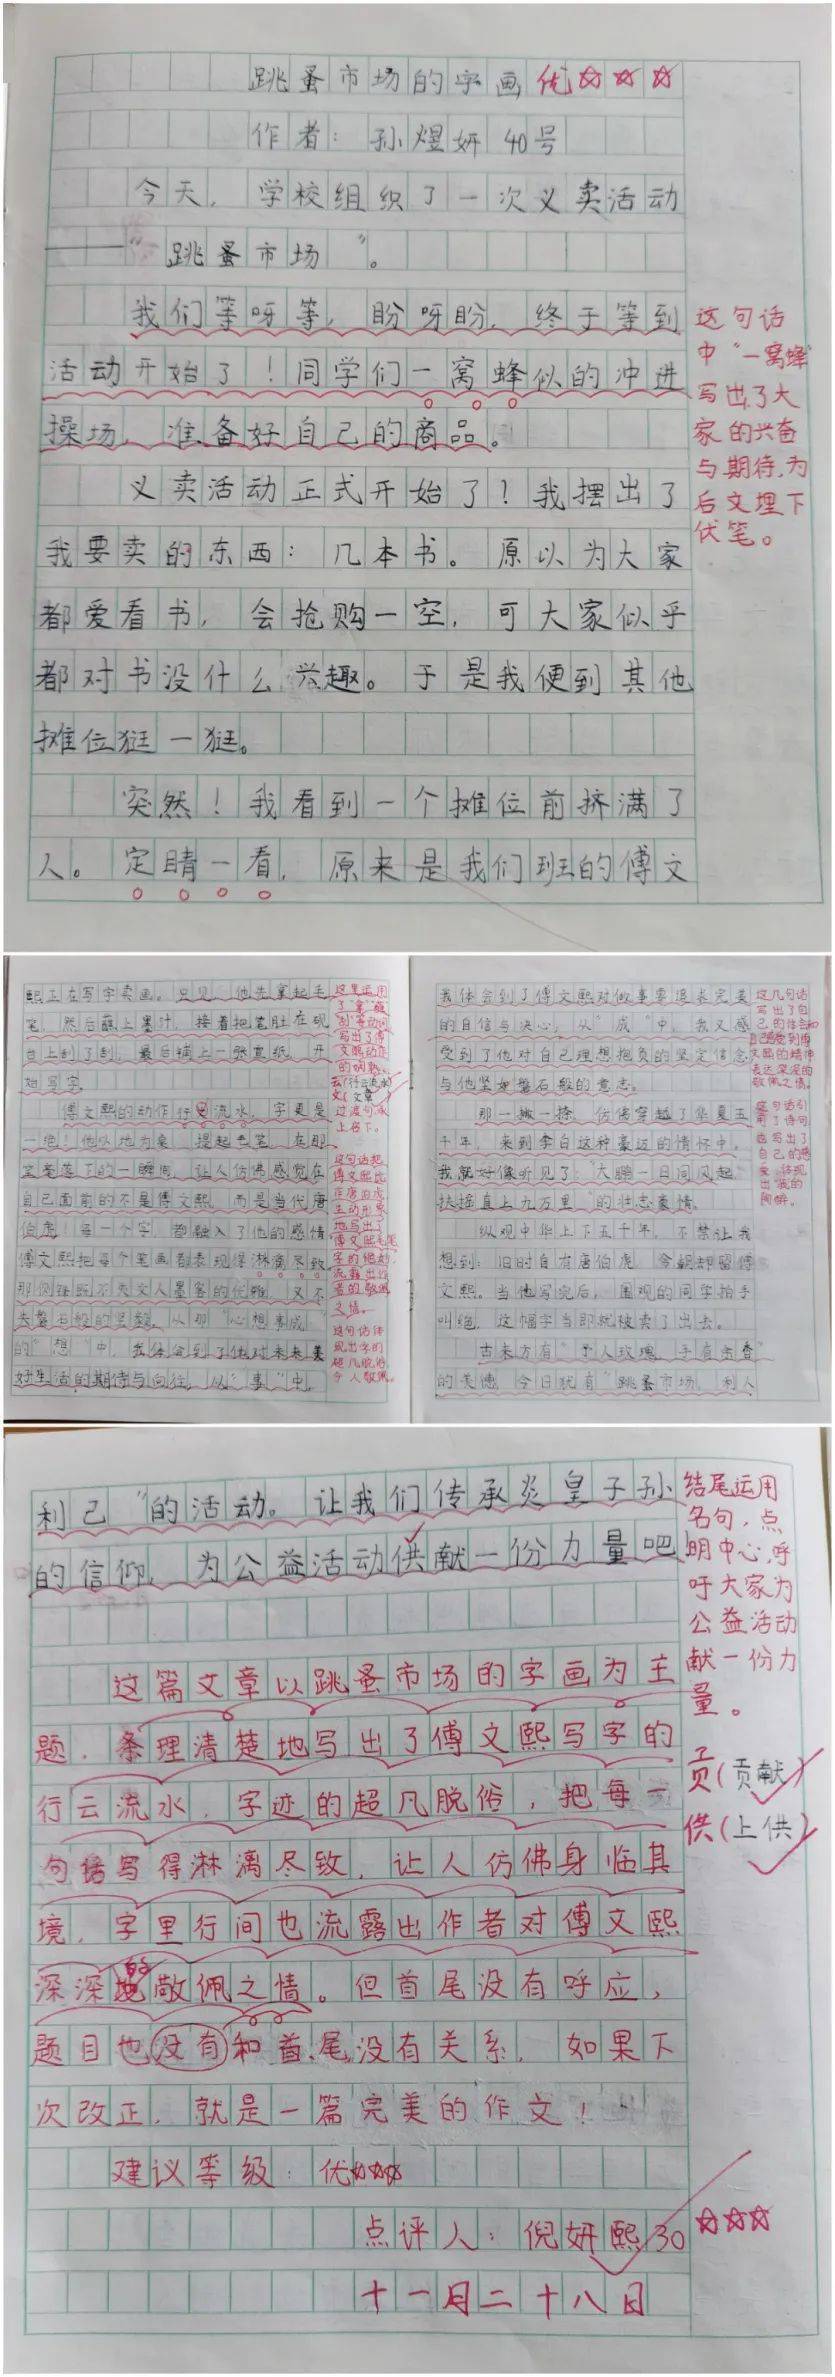 跳蚤市场的字画 优☆☆☆
作者：孙煜妍 40号
今天，学校组织了一次义卖活动
——“跳蚤市场”。
我们等呀等，盼呀盼，终于等到
活动开始了！同学们一窝蜂似的冲进
操场，准备好自己的商品。
义卖活动正式开始了！我摆出了
我要卖的东西：几本书。原以为大家
都爱看书，会抢购一空，可大家似乎
都对书没什么兴趣。于是我便到其他
摊位逛一逛。
突然！我看到一个摊位前挤满了
人。定睛一看，原来是我们班的傅文
这句话
中“一窝蜂”
写出了大
家的兴奋
与期待，为
后文埋下
伏笔。
熙正在写字卖画。只见他先拿起毛
笔，然后蘸上墨汁，接着把笔肚在砚
台上刮了刮，最后铺上一张宣纸，开
始写字。
傅文熙的动作行云流水，字更是
一绝！他以地为桌，提起毛笔，在那
宝毫落下的一瞬间，让人仿佛感觉在
自己面前的不是傅文熙，而是当代唐
伯虎！每一个字，都融入了他的感情
傅文熙把每个笔画都表现得淋漓尽致，
那侧锋既不失文人墨客的优雅，又不
失磐石般的坚毅。从那“心想事成”
的“想”中，我体会到了他对未来美
好生活的期待与向往，从“事”中，
这里运用
了“拿”“蘸”
“刮”等动词
写出了傅
文熙动作
的娴熟。
云（行云流水）
文（文章）
过渡句承
上启下。
这句话把
傅文熙比
作唐伯虎
生动形象
地写出了
傅文熙毛笔
字的绝妙，
流露出作
者的敬佩
之情。
这句话体
现出字的
超凡脱俗
令人敬佩。
我体会到了傅文熙对做事要追求完美
的自信与决心，从“成”中，我又感
受到了他对自己理想抱负的坚定信念
与他坚如磐石般的意志。
那一撇一捺，仿佛穿越了华夏五
千年，来到李白这种豪迈的情怀中，
我就好像听见了：“大鹏一日同风起，
扶摇直上九万里”的壮志豪情。
纵观中华上下五千年，不禁让我
想到：旧时自有唐伯虎，今朝却留傅
文熙。当他写完后，围观的同学拍手
叫绝，这幅字当即就被卖了出去。
古来方有“予人玫瑰，手有余香”
的美德，今日就有“跳蚤市场，利人
这几句话
写出了自
己的体会和
自己感受到傅
文熙的精神
表达深深的
敬佩之情。
这句话引
用了诗句
也写出了
自己的感
受，体现
出“我”的
陶醉。
利己”的活动。让我们传承炎皇子孙
的信仰，为公益活动供献一份力量吧
结尾运用
名句，点
明中心，呼
吁大家为
公益活动
献一份力
量。
贡（贡献）
供（上供）
这篇文章以跳蚤市场的字画为主
题，条理清楚地写出了傅文熙写字的
行云流水，字迹的超凡脱俗，把每一
句话写得淋漓尽致，让人仿佛身临其
境，字里行间也流露出作者对傅文熙
深深的敬佩之情。但首尾没有呼应，
题目也没有和首尾没有关系，如果下
次改正，就是一篇完美的作文！
建议等级：优☆☆☆
点评人：倪妍熙30 ☆☆☆
十一月二十八日